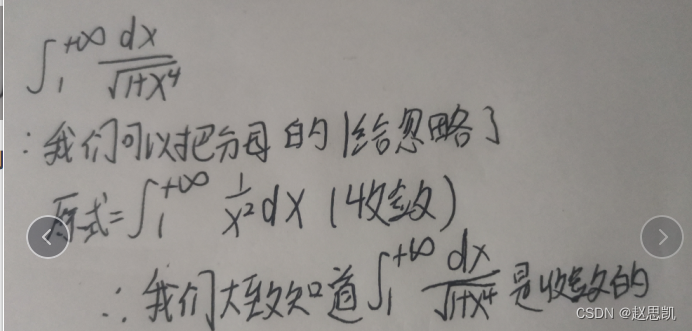 ∫₁^{+∞} dx/√(1+x⁴)
∵我们可以把分母的1给忽略了
原式=∫₁^{+∞} 1/x² dx (收敛)
∴我们大致知道∫₁^{+∞} dx/√(1+x⁴) 是收敛的
CSDN @赵思凯